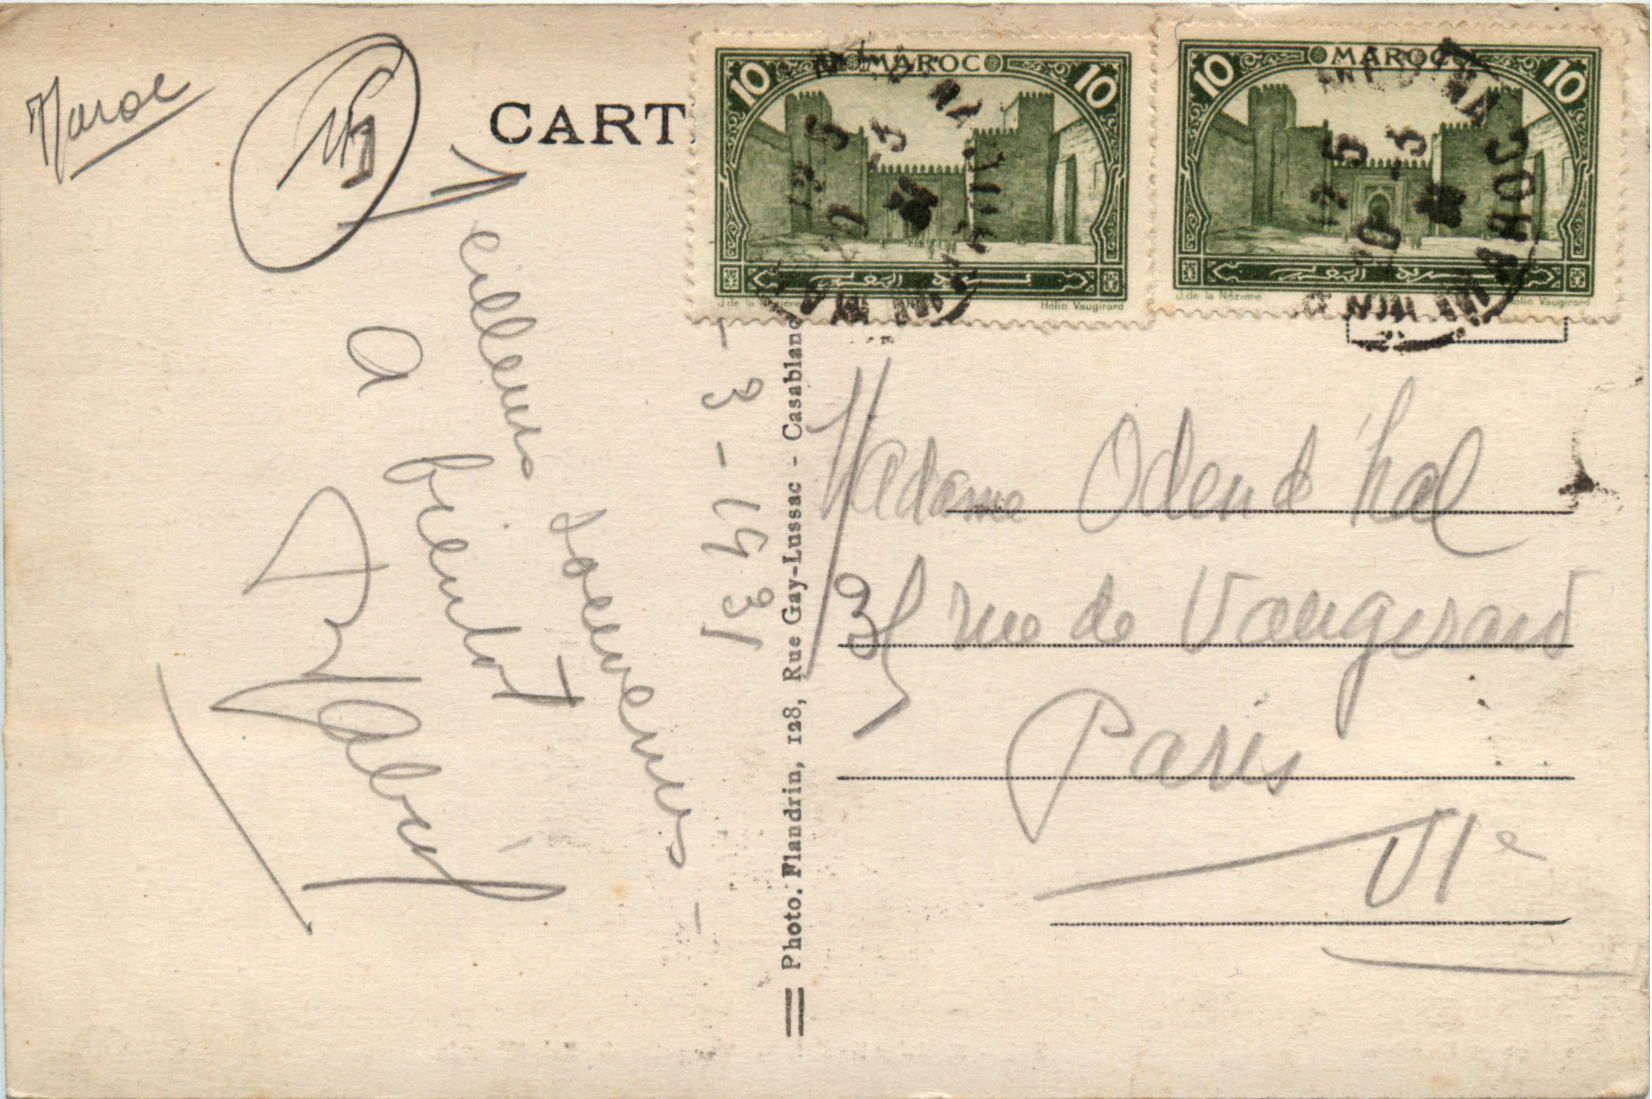 Maroc
CART
MAROC
10 10
J. de la Nézière
Hélio Vaugirard
MAROC
10 10
J. de la Nézière
Hélio Vaugirard
MEDINA
MAROC
-3-1931
Meilleurs souvenirs -
A bientôt
Photo. Flandrin, 128, Rue Gay-Lussac - Casablanc
Madame Odend'hal
rue de Vaugirard
Paris
VIe